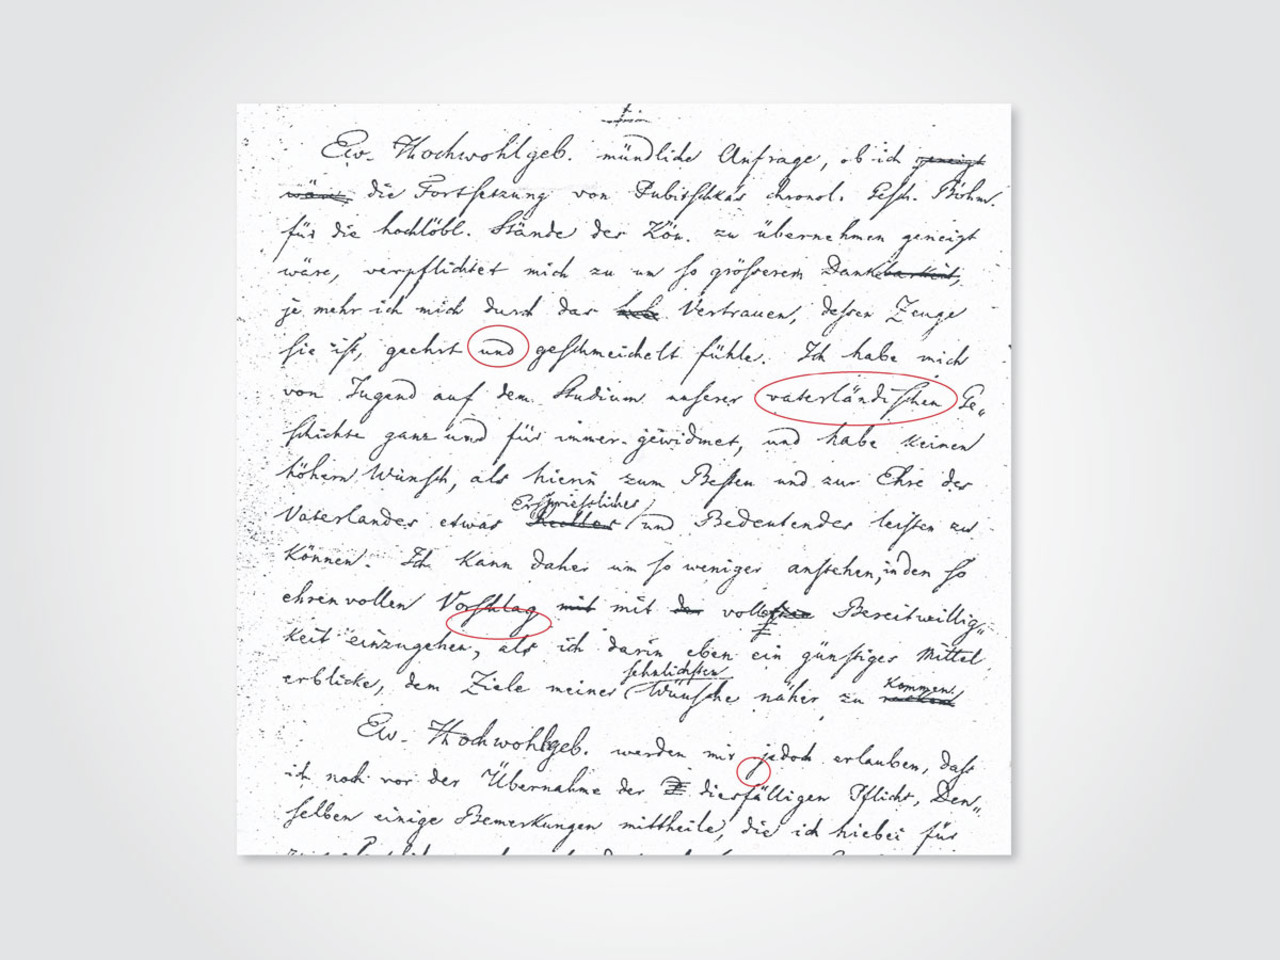 Ew. Hochwohlgeb. mündliche Anfrage, ob ich geneigt
wäre die Fortsetzung von Pubitschkas chronol. Gesch. Böhm.
für die hochlöbl. Stände des Kön. zu übernehmen geneigt
wäre, verpflichtet mich zu um so grösserem Dankbarkeit,
je mehr ich mich durch das Vertrauen, dessen Zeuge
sie ist, geehrt und geschmeichelt fühle. Ich habe mich
von Jugend auf dem Studium unserer vaterländischen Ge„
schichte ganz und für immer gewidmet, und habe keinen
höhern Wunsch, als hierin zum Besten und zur Ehre des
Erspriessliches
Vaterlandes etwas und Bedeutendes leisten zu
können. Ich kann daher um so weniger anstehen, in den so
ehrenvollen Vorschlag mit mit der voll Bereitwillig„
keit einzugehen, als ich darin eben ein günstiges Mittel
sehnlichsten
erblicke, dem Ziele meiner Wünsche näher zu kommen.
Ew. Hochwohlgeb. werden mir jedoch erlauben, dass
ich noch vor der Übernahme der diesfälligen Pflicht, Den„
selben einige Bemerkungen mittheile, die ich hiebei für